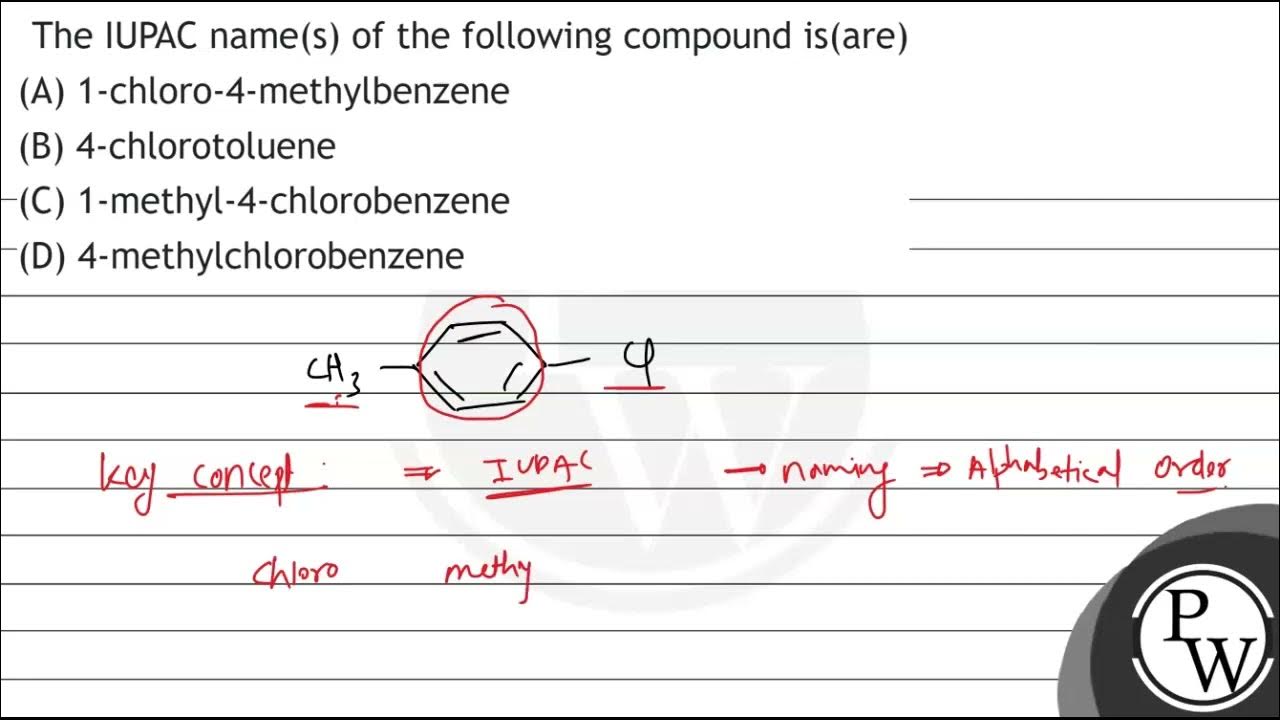 The IUPAC name(s) of the following compound is(are)
(A) 1-chloro-4-methylbenzene
(B) 4-chlorotoluene
(C) 1-methyl-4-chlorobenzene
(D) 4-methylchlorobenzene
CH3 Cl
Key concept : ⇒ IUPAC → naming ⇒ Alphabetical order
chloro methy
PW